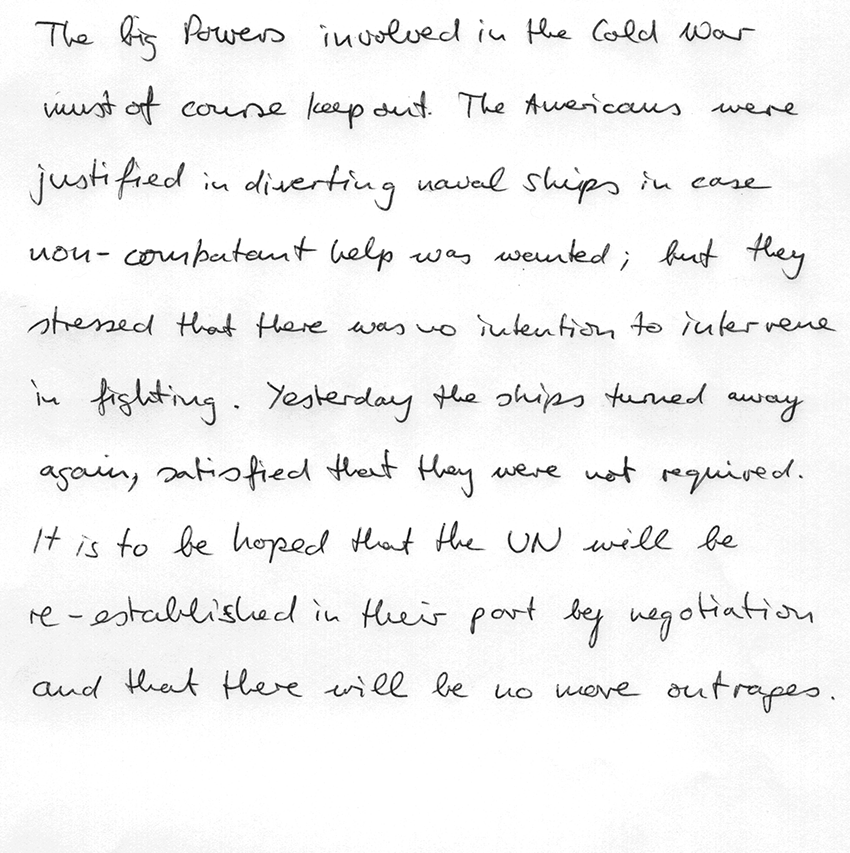 The big Powers involved in the Cold War
must of course keep out. The Americans were
justified in diverting naval ships in case
non-combatant help was wanted; but they
stressed that there was no intention to intervene
in fighting. Yesterday the ships turned away
again, satisfied that they were not required.
It is to be hoped that the UN will be
re-established in their port by negotiation
and that there will be no more outrages.